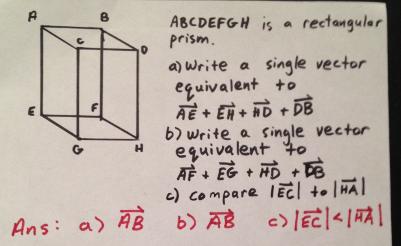 A B
C D
E F
G H
ABCDEFGH is a rectangular
prism.
a) Write a single vector
equivalent to
AE + EH + HD + DB
b) Write a single vector
equivalent to
AF + EG + HD + DB
c) compare |EC| to |HA|
Ans: a) AB b) AB c) |EC| < |HA|